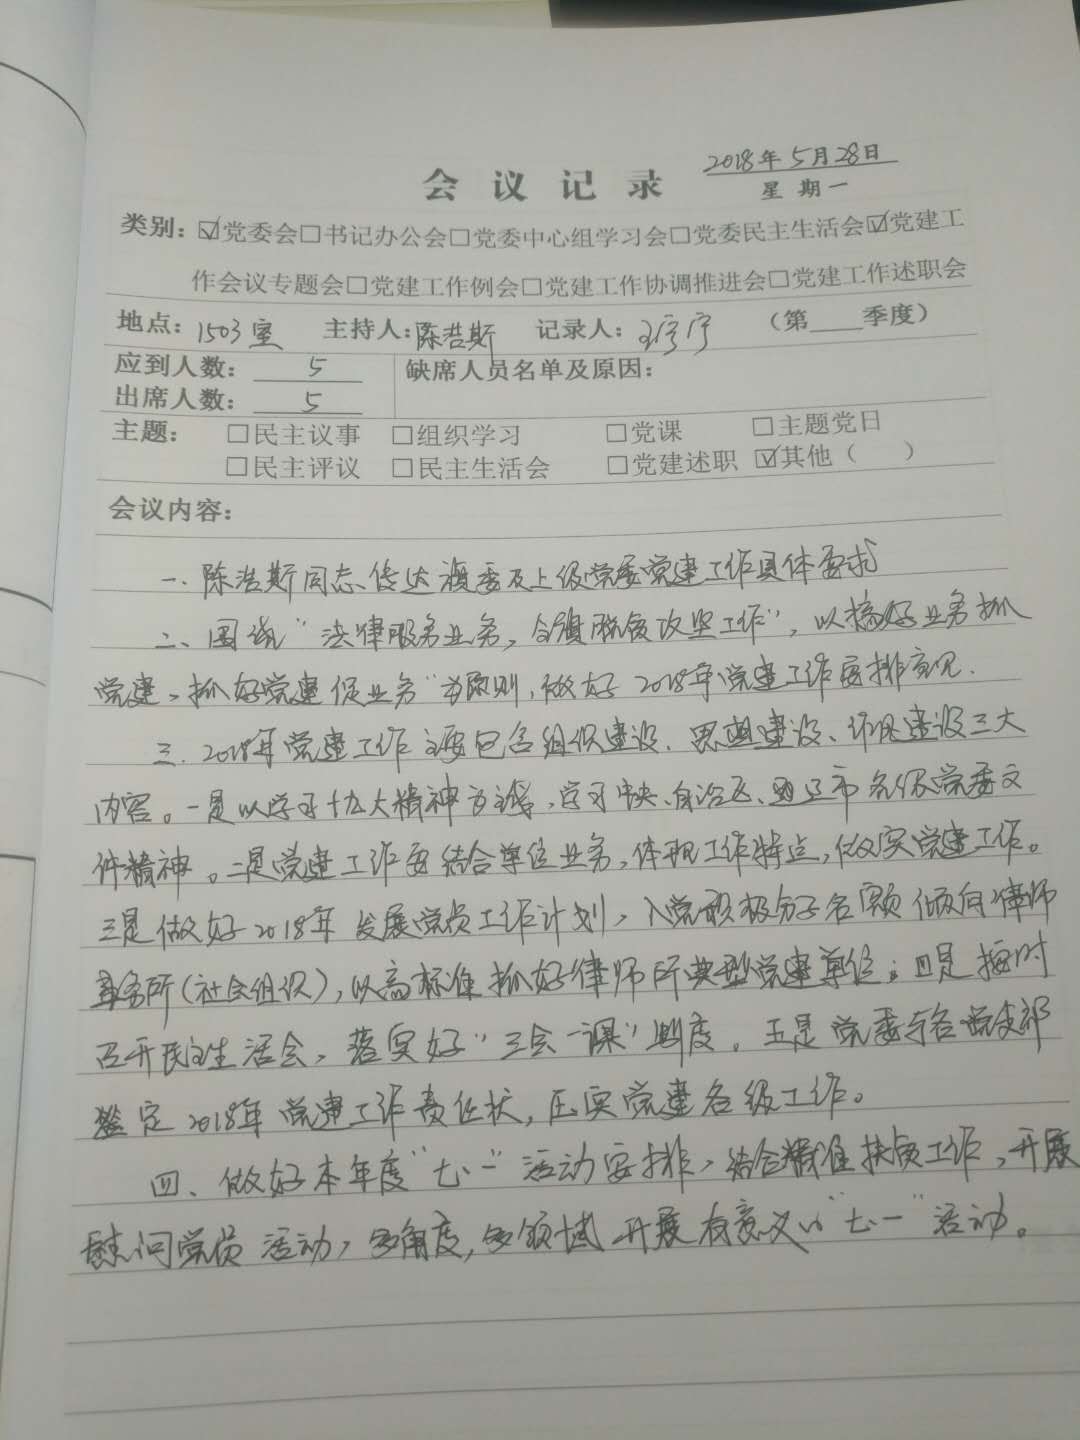 2018年5月28日
会议记录
星期一
类别：☑党委会□书记办公会□党委中心组学习会□党委民主生活会☑党建工
作会议专题会□党建工作例会□党建工作协调推进会□党建工作述职会
地点：1503室 主持人：陈浩斯 记录人：王宇宁 （第____季度）
应到人数：5 缺席人员名单及原因：
出席人数：5
主题： □民主议事 □组织学习 □党课 □主题党日
□民主评议 □民主生活会 □党建述职 ☑其他（ ）
会议内容：
一、陈浩斯同志传达旗委及上级党委党建工作具体要求
二、围绕“法律服务业务，全旗脱贫攻坚工作”，以搞好业务抓
党建，抓好党建促业务“为原则，做好2018年党建工作安排意见．
三、2018年党建工作主要包含组织建设、思想建设、作风建设三大
内容。一是以学习十九大精神为主线，学习中央、自治区、通辽市各级党委文
件精神。二是党建工作要结合单位业务，体现工作特点，做实党建工作。
三是做好2018年发展党员工作计划，入党积极分子名额倾向律师
事务所（社会组织），以高标准抓好律师所典型党建单位；四是按时
召开民主生活会，落实好“三会一课”制度。五是党委与各党支部
签定2018年党建工作责任状，压实党建各级工作。
四、做好本年度“七·一”活动安排，结合精准扶贫工作，开展
慰问党员活动，多角度，多领域开展有意义的“七·一”活动。